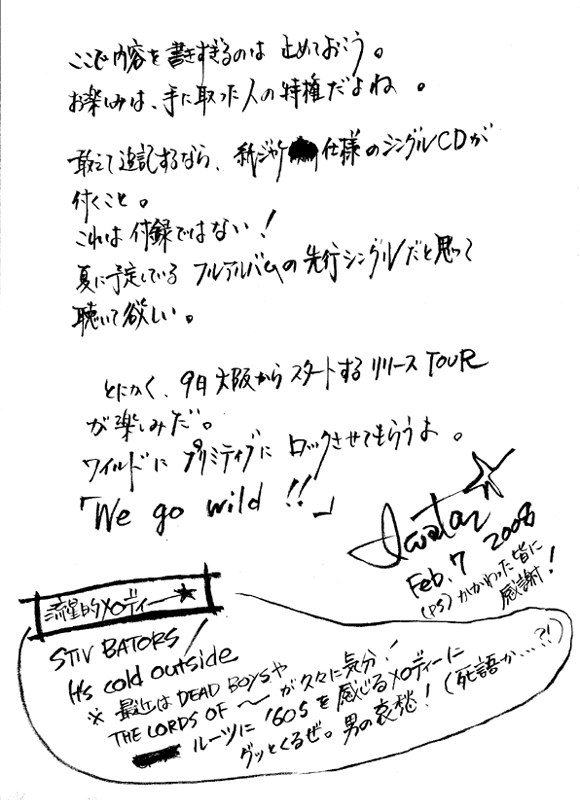 ここで内容を書きすぎるのは 止めておこう。
お楽しみは、手に取った人の特権だよね 。
敢えて追記するなら、紙ジャケ 仕様のシングルCDが
付くこと。
これは付録ではない!
夏に予定している フルアルバムの先行シングルだと思って
聴いて欲しい。
とにかく、9日大阪からスタートするリリースTOUR
が楽しみだ。
ワイルドに プリミティブに ロックさせてもらうよ 。
「We go wild !!」
Feb. 7 2008
(PS) かかわった皆に
感謝!
流星的メロディー★
STIV BATORS!
It's cold outside
※ 最近は DEAD BOYSや
THE LORDS OF 〜 が久々に気分!
ルーツに '60Sを感じるメロディーに
グッとくるぜ。男の哀愁!(死語か…?!)